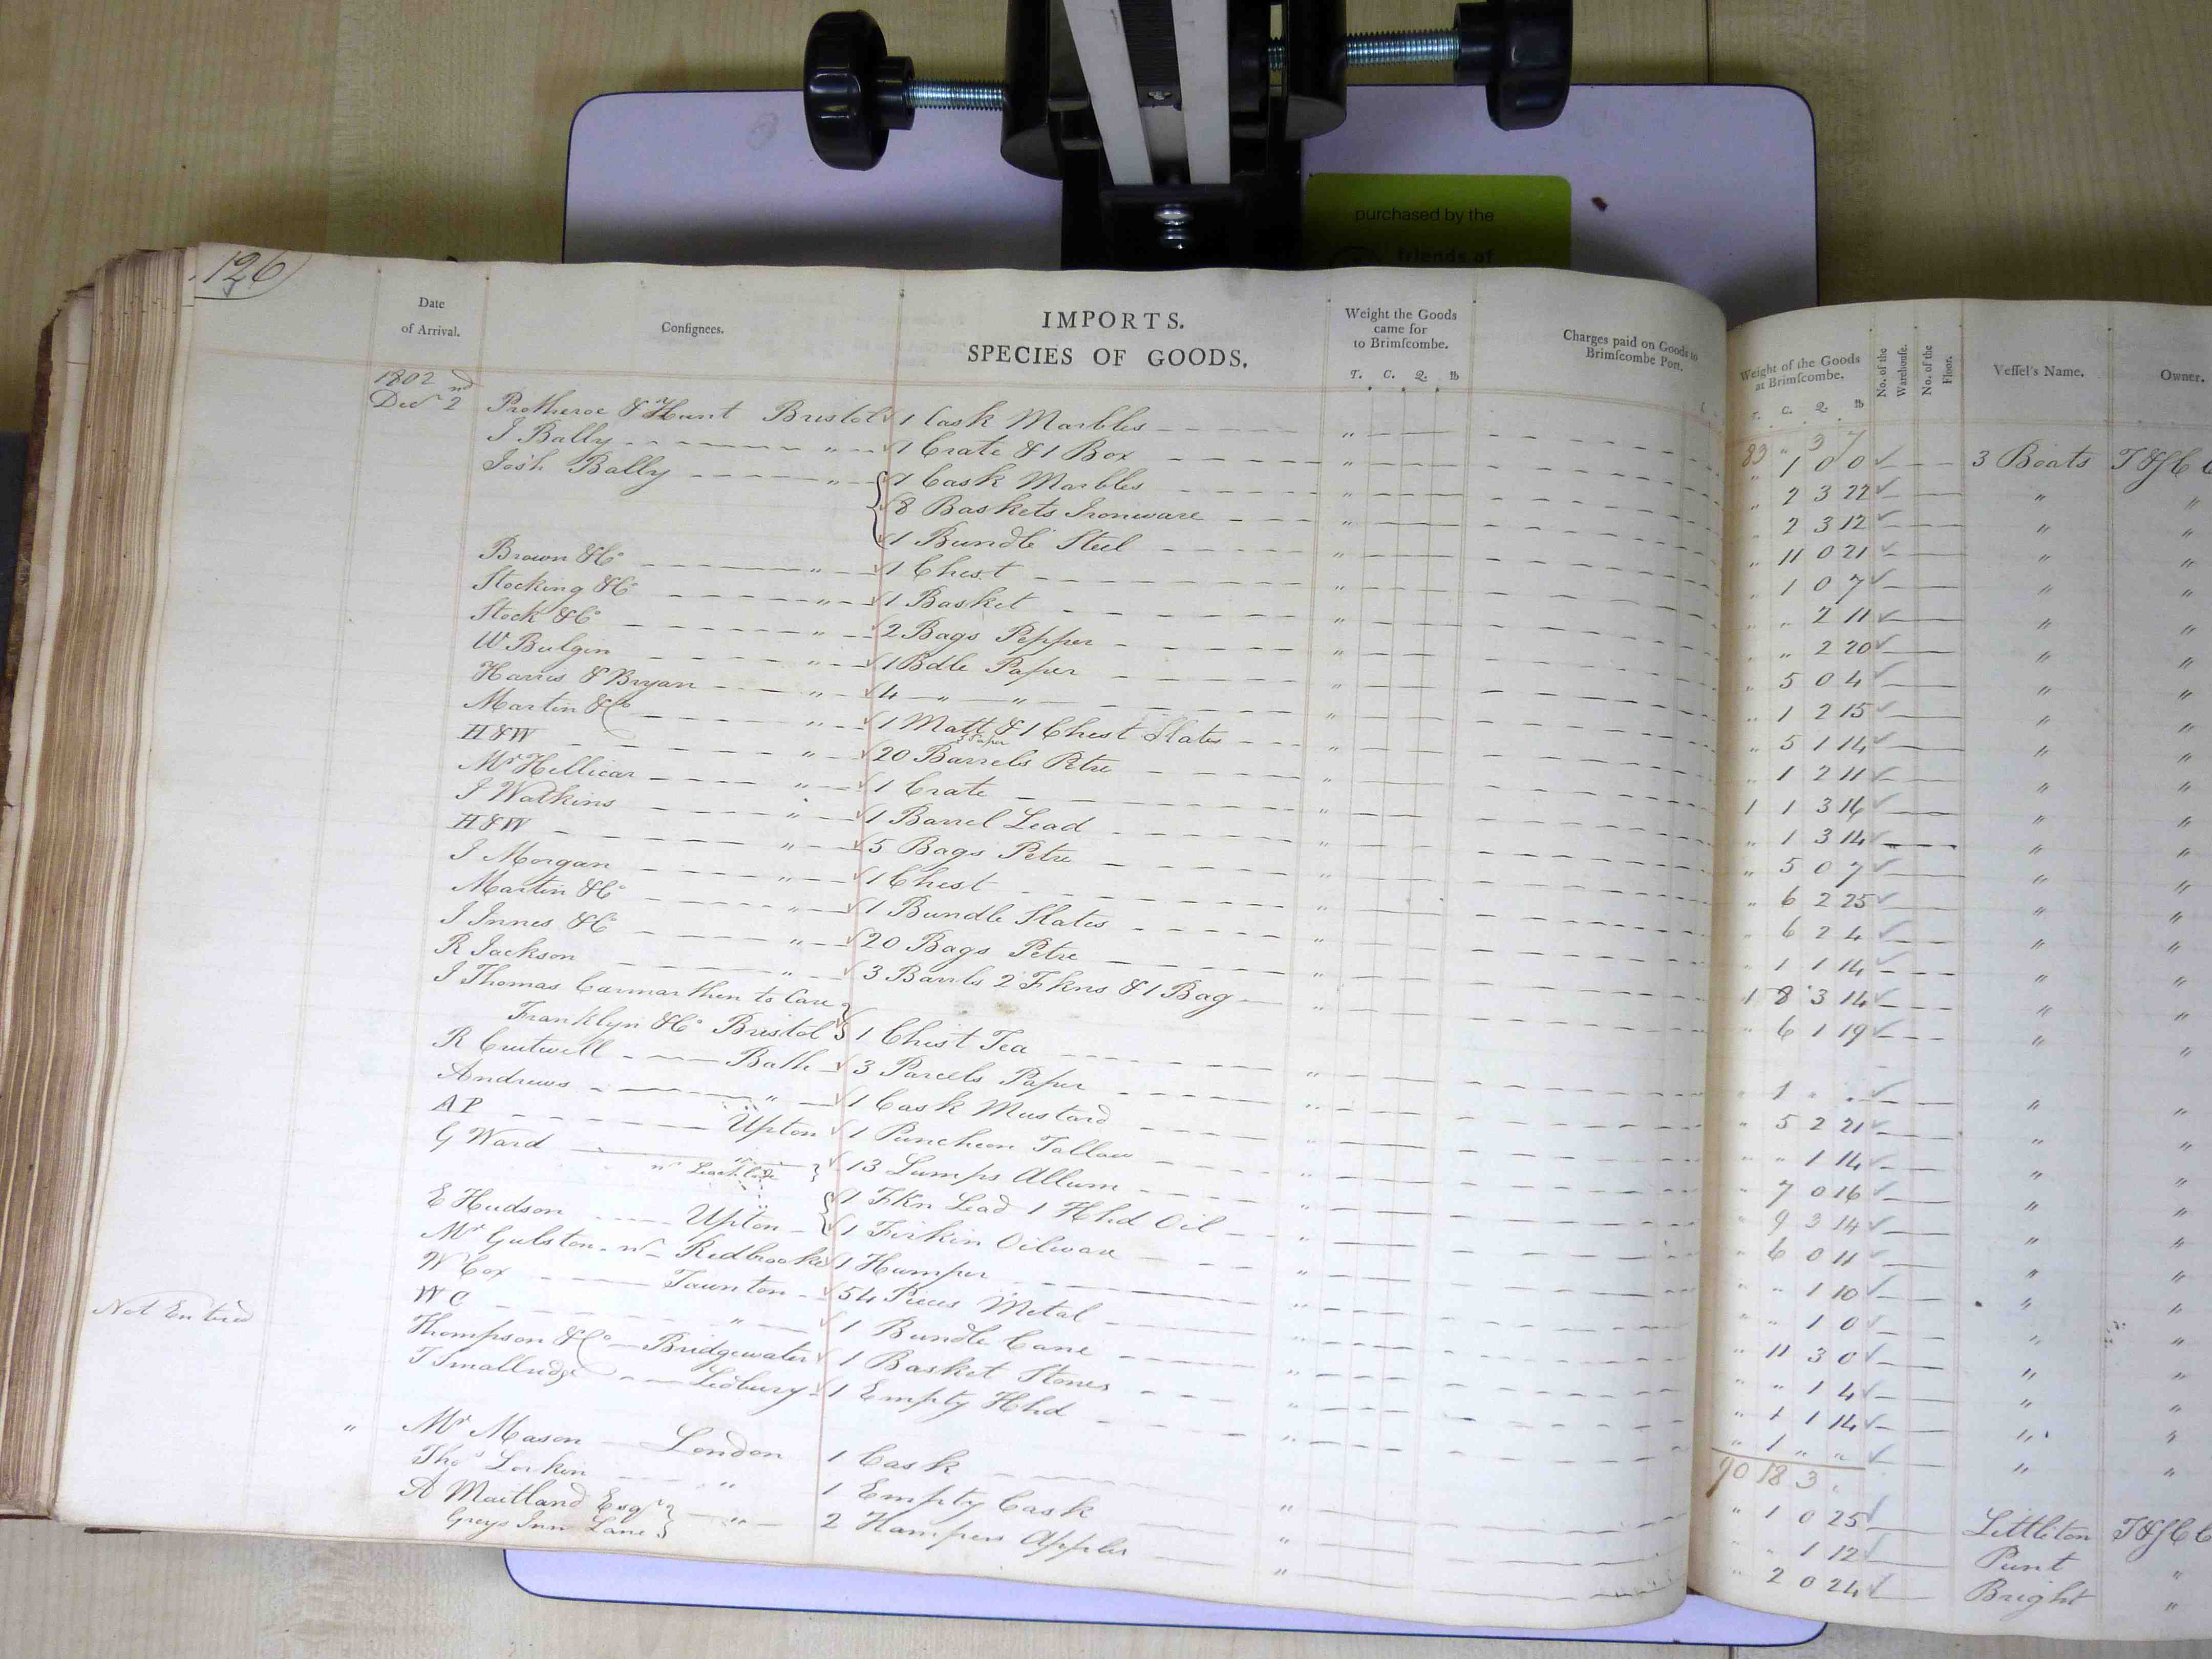 purchased by the
friends of
126
Date
of Arrival.
Consignees.
IMPORTS.
SPECIES OF GOODS.
Weight the Goods
came for
to Brimscombe.
T. C. Q. lb
Charges paid on Goods to
Brimscombe Port.
Weight of the Goods
at Brimscombe.
T. C. Q. lb
No. of the
Warehouse.
No. of the
Floor.
Vessel's Name.
Owner.
1802
83 " 3 7
Decr 2nd Protheroe & Hunt Bristol 1 Cask Marbles " " 1 0 0 3 Boats T&JC
J Bally " 1 Crate & 1 Box " " 2 3 22 " "
Josh Bally " 1 Cask Marbles " " 2 3 12 " "
8 Baskets Ironware " " 11 0 21 " "
1 Bundle Steel " " 1 0 7 " "
Brown & Co " 1 Chest " " " 2 11 " "
Stocking & Co " 1 Basket " " " 2 20 " "
Stock & Co " 2 Bags Pepper " " 5 0 4 " "
W Bulgin " 1 Bdle Paper " " 1 2 15 " "
Harris & Bryan " 4 " " " " 5 1 14 " "
Martin & Co " 1 Matt & 1 Chest Slates " " 1 2 11 " "
H & W " 20 Barrels Petre " 1 1 3 16 " "
Mr Hellicar " 1 Crate " " 1 3 14 " "
J Watkins " 1 Barrel Lead " " 5 0 7 " "
H & W " 5 Bags Petre " " 6 2 25 " "
J Morgan " 1 Chest " " 6 2 4 " "
Martin & Co " 1 Bundle Slates " " 1 1 14 " "
J Innes & Co " 20 Bags Petre " 1 8 3 14 " "
R Jackson " 3 Barrls 2 Fkns & 1 Bag " " 6 1 19 " "
J Thomas Carmarthen to Care
Franklyn & Co Bristol 1 Chest Tea " " 1 " " "
R Crutwell Bath 3 Parcels Paper " " 5 2 21 " "
Andrews " 1 Cask Mustard " " " 1 14 " "
AP Upton 1 Puncheon Tallow " " 7 0 16 " "
G Ward 13 Lumps Allum " " 9 3 14 " "
1 Fkn Lead 1 Hhd Oil " " 6 0 11 " "
E Hudson Upton 1 Firkin Oilware " " 1 10 " "
Mr Gulston Redbrooke 1 Hamper " " " 1 0 " "
W Cox Taunton 54 Pieces Metal " " 11 3 0 " "
WC " 1 Bundle Cane " " " 1 4 " "
Thompson & Co Bridgewater 1 Basket Stones " " 1 1 14 " "
Not Entered
T Smallridge Ledbury 1 Empty Hhd " " 1 " " " "
90 18 3
" Mr Mason London 1 Cask " " 1 0 25 Littleton T&JC
Thos Lorkin " 1 Empty Cask " " " 1 12 Punt "
A Maitland Esqr " 2 Hampers Apples " " 2 0 24 Bright "
Greys Inn Lane